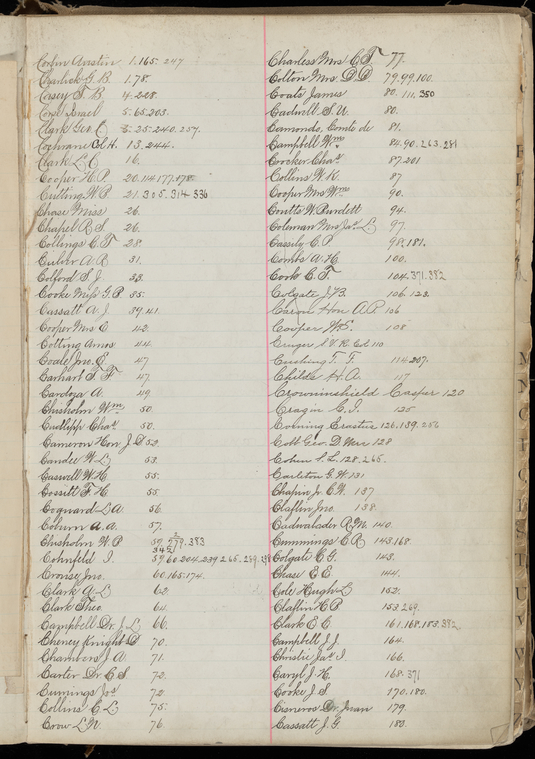 Corbin Austin 1.165.247
Charlick G.B. 1.78.
Casey T.B 4.208.
Coné Israel 5.65.203.
Clark Geo. C 6.25.240.257.
Cochrane A.H. 13.244.
Clark L.C. 16.
Cooper H.P. 20.114.177.178.
Cutting W.P. 21.305.314.336
Chase Miss 26.
Chapel R.S. 26.
Collings C.T 28.
Culver A.R 31.
Colford S.J. 33.
Cooke Miss G.P. 35.
Cassatt A.J. 39.41.
Cooper Mrs E 42.
Cotting Amos 44.
Coale Jno. E. 47
Carhart T.F 47.
Cardoza A. 49.
Chisholm Wm. 50.
Cudlipp Chas 50.
Cameron Hon J.D 52.
Candee W.L 53.
Caswell W.H. 55.
Cossitt F.H. 55.
Cognard L.A 56.
Coburn A.A. 57.
Chisholm W.P. 59.279.383
342
Cohnfeld I. 59.60.204.239.265.289.
Cronise Jno. 60.165.174.
Clark A.L 62.
Clark Theo. 64.
Campbell Dr. J.L 66.
Cheney Knight D 70.
Chambers J.A. 71.
Carter Dr C.S 72.
Cumings Jos 72
Collins C.L. 75.
Crow L.W. 76.
Charless Mrs E.T. 77.
Colton Mrs. D.D. 79.99.100.
Coats James 80.111.350
Cadwell S.U. 80.
Camondo, Comte de 81.
Campbell Wm. 84.90.263.281
Crocker Chas 87.201
Collins W.K. 87
Cooper Mrs Wm 90.
Coutts W. Burdett 94.
Coleman Mrs Jas. L 97
Cassily C.P. 98.181.
Combs A.H. 100.
Cook C.T. 104.371.382
Colgate J.B. 106.123.
Carroll Hon A.P. 106
Cooper W.E. 108
Cruger S V R Col 110
Cushing T.F. 114.207.
Childs H.A. 117
Crowninshield Casper 120
Cragin E.I. 125
Corning Erastus 126.139.256
Cobb Geo. D. Mrs 128
Cohen S.L. 128.265.
Carleton G.W 131
Chapin Jr E.W. 137
Claflin Jno. 138.
Cadwalader R.M. 140.
Cummings E R 143.168.
Colgate C.G. 143.
Chase E E 144.
Cole Hugh L 152.
Claflin H.B 153.269.
Clark E E 161.168.183.382
Campbell J.J. 164.
Christie Jas I. 166.
Caryl J.H. 168.371
Cooke J.S 170.180.
Cisneros Dr. Juan 179
Cassatt J.G. 183.